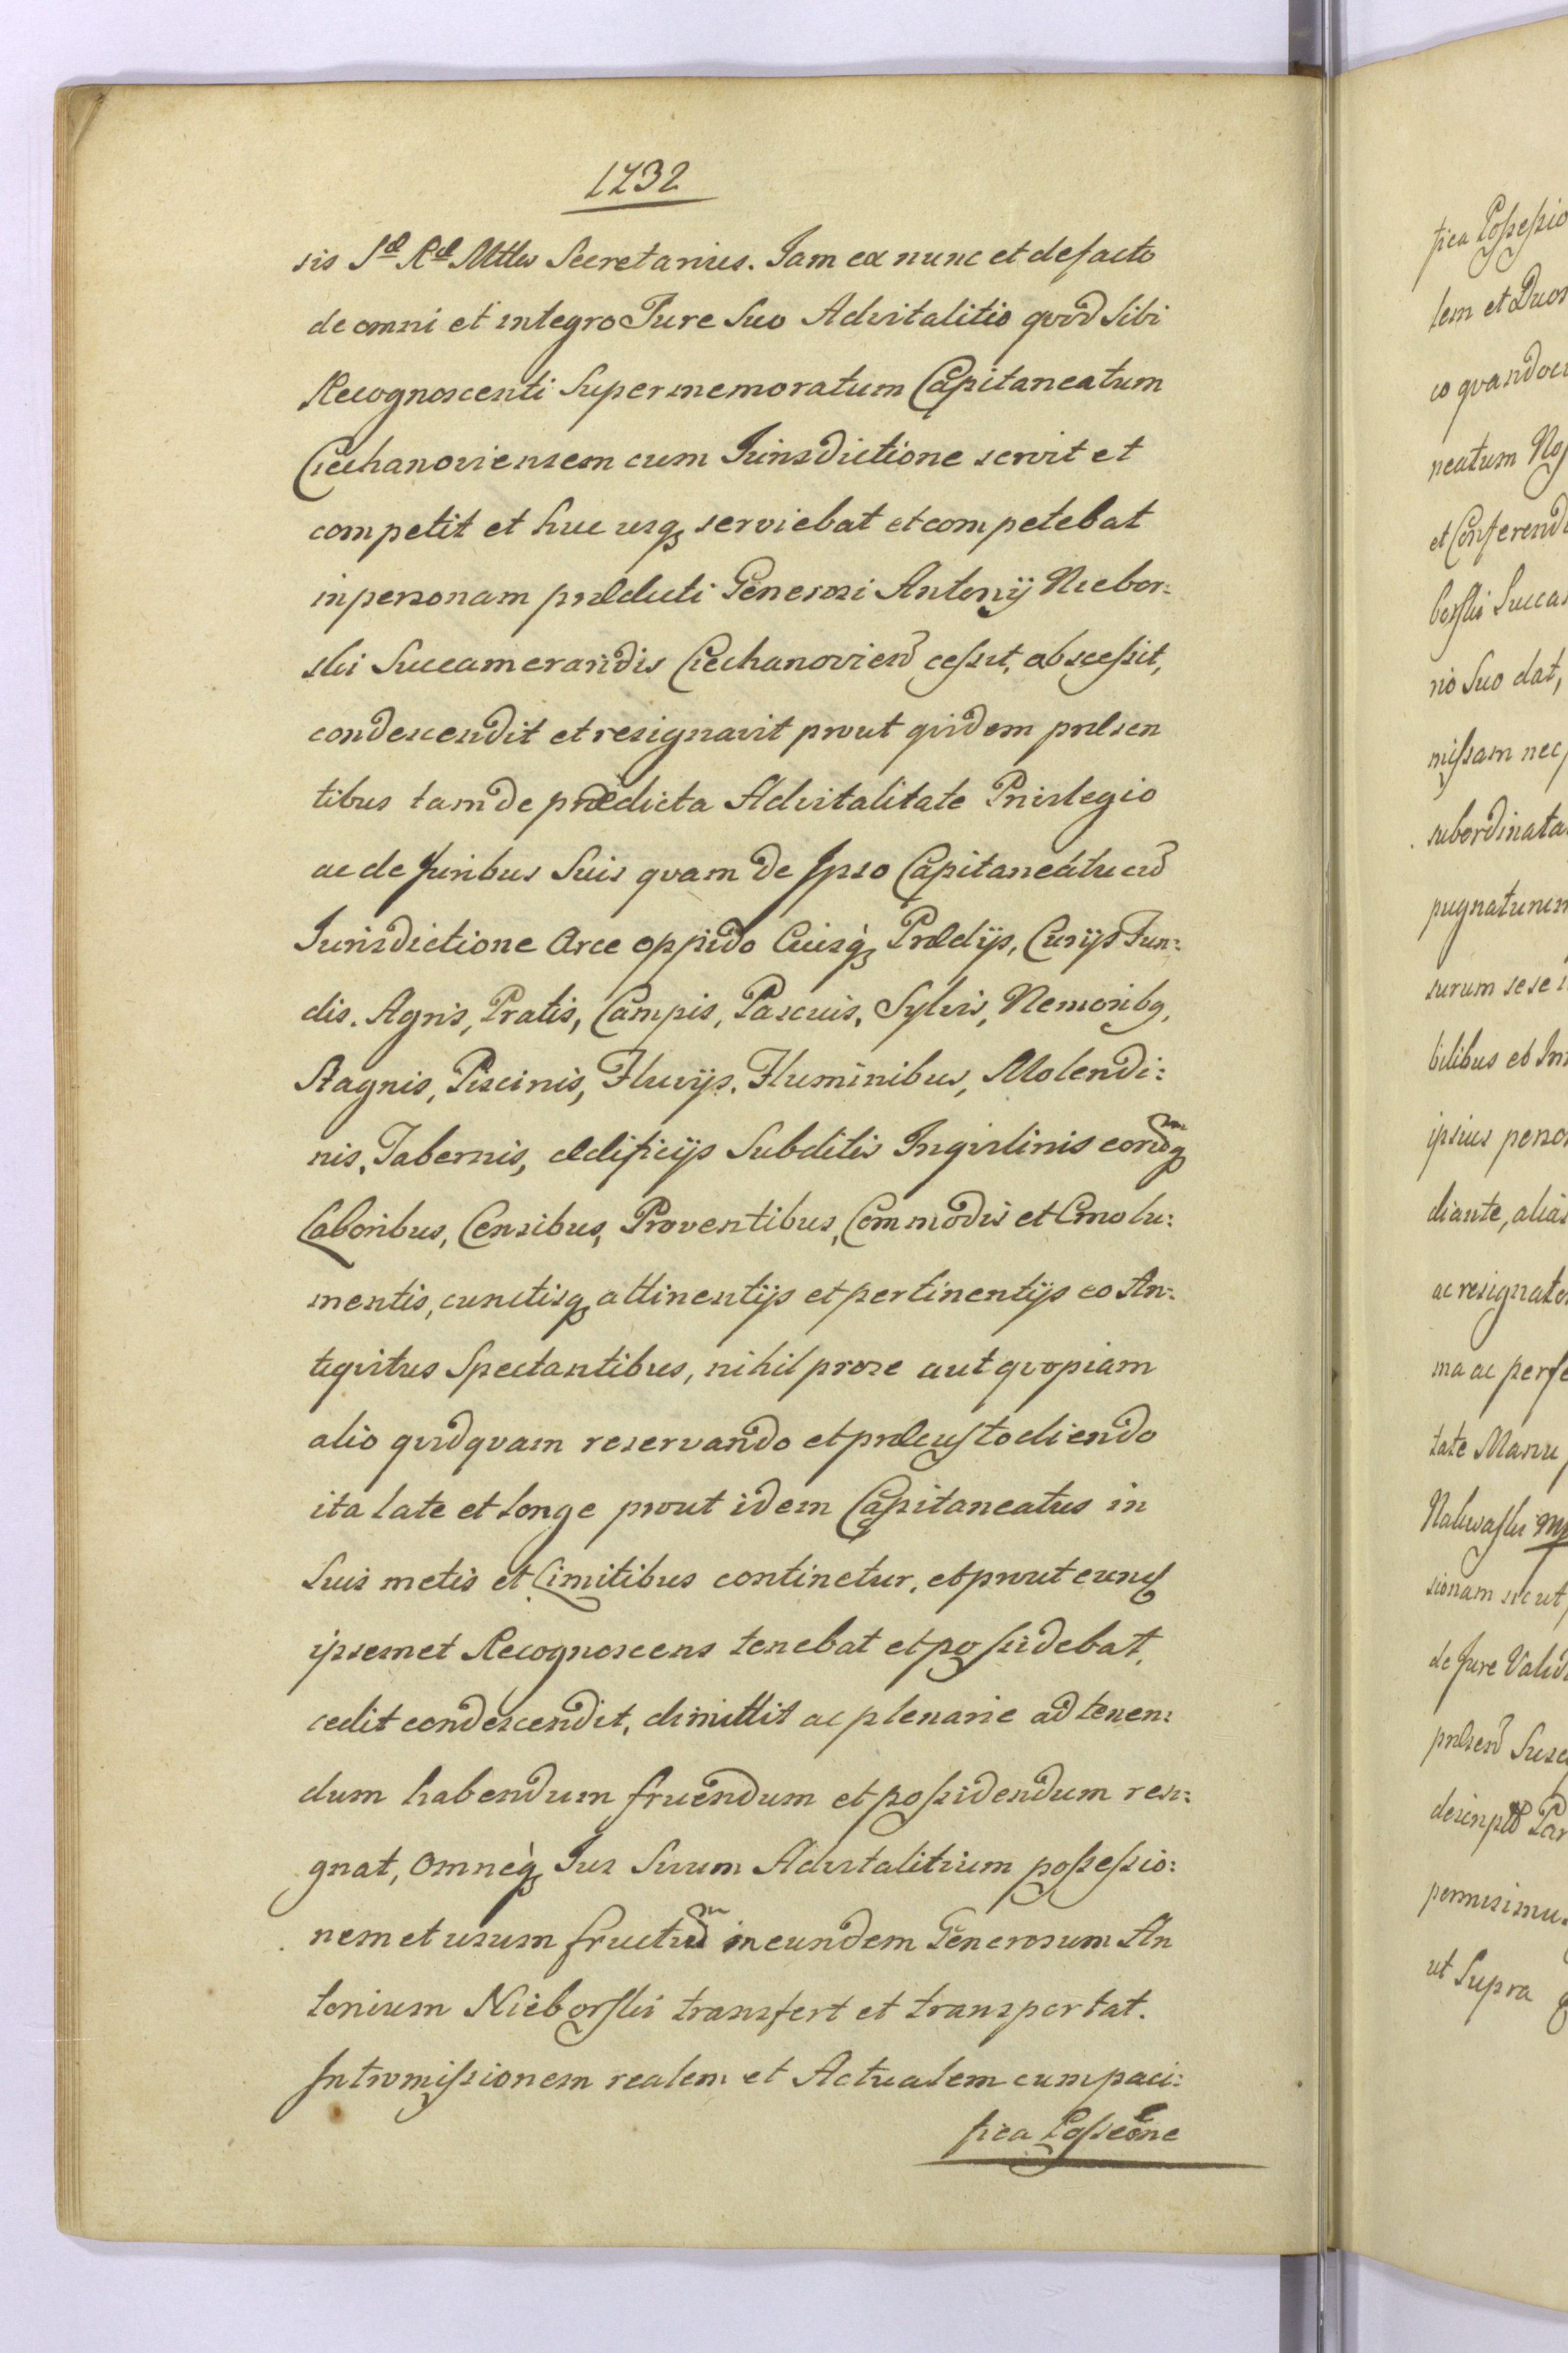 1732
sis Sæ Ræ Mttis Secretarius. Jam ex nunc et defacto
de omni et integro Jure Suo Advitalitio qvod Sibi
Recognoscenti Supermemoratum Capitaneatum
Ciechanoviensem cum Jurisdictione servit et
competit et huc usq serviebat et competebat
in personam prædicti Generosi Antonij Niebor:
ski Succamerandis Ciechanovien cessit, abscessit,
condescendit et resignavit prout qvidem præsen
tibus tam de prædicta Advitalitate Privilegio
ac de Juribus Suis qvam de Ipso Capitaneatu cu
Jurisdictione Arce oppido Cuisq Prædijs, Curijs Fun:
dis. Agris, Pratis, Campis, Pascuis, Sylvis, Nemoribq,
Stagnis, Piscinis, Fluvijs, Fluminibus, Molendi:
nis, Tabernis, ædificijs Subditis Inqvilinis eorumq
Laboribus, Censibus, Proventibus, Commodis et Emolu:
mentis, cunctisq attinentijs et pertinentijs eo An:
tiqvitus Spectantibus, nihil pro se aut qvopiam
alio qvidqvam reservando et præcustodiendo
ita late et longe prout idem Capitaneatus in
Suis metis et Limitibus continetur, et prout eund
ipsemet Recognoscens tenebat et possidebat,
cedit condescendit, dimittit ac plenarie ad tenen:
dum habendum fruendum et possidendum resi:
gnat, Omneq Jus Suum Advitalitium possessio:
nem et usum fructum in eundem Generosum An
tonium Nieborski transfert et transportat.
Intromissionem realem et Actualem cum paci:
fica Posseone
fica Possessio
lem et Duor
co qvandocu
neatum No
et Conferend
borski Succa
rio Suo dat,
missam nec
subordinata
pugnaturum
surum sese i
bilibus et In
ipsius perso
diante, alias
ac resignato
ma ac perfe
tate Manu
Nakwaski mp
sionam sicut
de Jure Valid
præsen Susc
descripto Par
permisimus
ut Supra